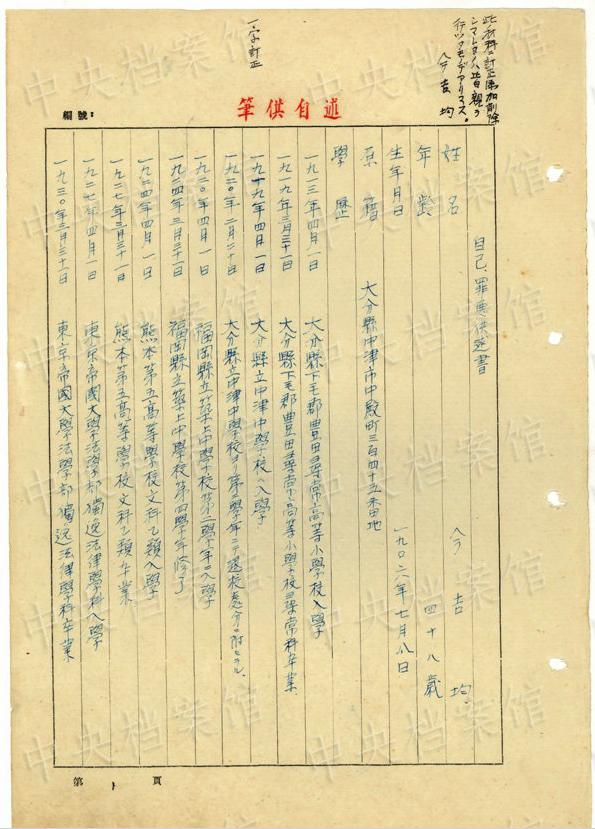 此材料ニ訂正添加削除
シマシタノハ皆自親ラ
行ツタモノデアリマス。
今吉 均
一字訂正
筆供自述
編號：
自己ノ罪悪供述書
姓名 今吉 均
年齢 四十八歳
生年月日 一九〇六年七月八日
原籍 大分縣中津市中殿町三百四十五番地
學歴
一九一三年四月一日 大分縣下毛郡豊田尋常高等小學校入學
一九一九年三月三十一日 大分縣下毛郡豊田尋常高等小學校尋常科卒業
一九一九年四月一日 大分縣立中津中學校ヘ入學
一九二〇年二月二十日 大分縣立中津中學校ヨリ第一學年ニテ退校處分ニ附セラル、
一九二〇年四月一日 福岡縣立築上中學校第一學年ニ入學
一九二四年三月三十一日 福岡縣立築上中學校第四學年修了
一九二四年四月一日 熊本第五高等學校文科乙類入學
一九二七年三月三十一日 熊本第五高等學校文科乙類卒業
一九二七年四月一日 東京帝國大學法學部獨逸法律學科入學
一九三〇年三月三十一日 東京帝國大學法學部獨逸法律學科卒業
第 1 頁
中央档案馆